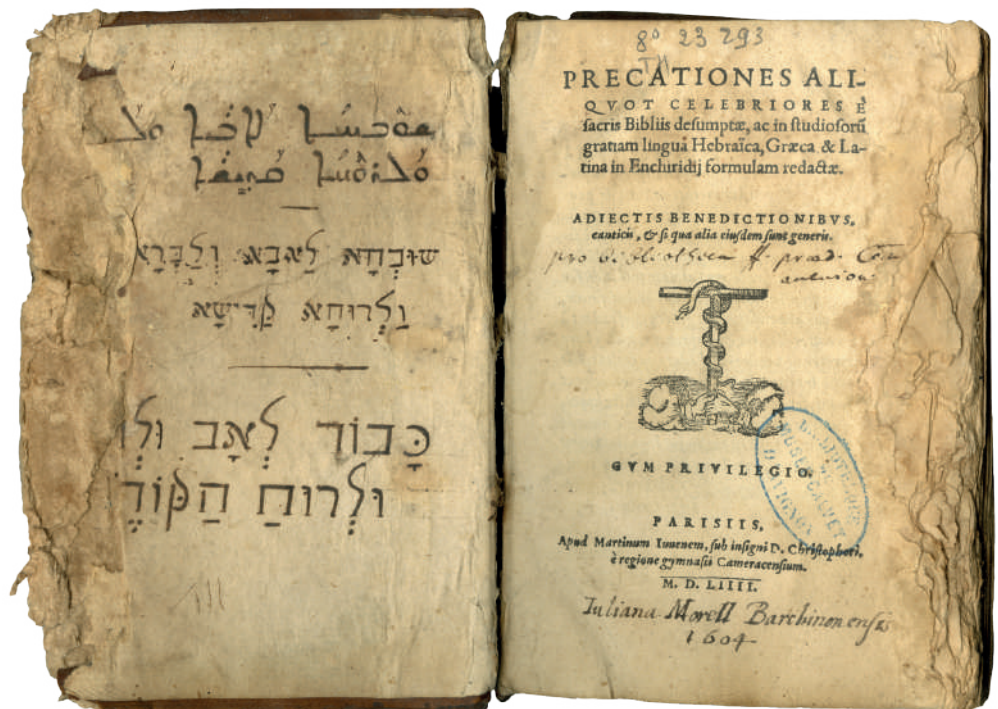 ܫܘܒܚܐ ܠܐܒܐ ܘܠ
ܘܠܪܘܚܐ ܩܕܝܫܐ
שׁוּבְחָא לַאבָא וְלַבְּרָא
וַלְרוּחָא קַדִּישָׁא
כָּבוֹד לְאָב וְלְ
וּלְרוּחַ הַקּוֹדֶ
8° 23 293
PRECATIONES ALI-
QVOT CELEBRIORES È
sacris Bibliis desumptæ, ac in studiosorũ
gratiam linguâ Hebraïca, Græca & La-
tina in Enchiridij formulam redactæ.
ADIECTIS BENEDICTIONIBVS,
canticis, & si qua alia eiusdem sunt generis.
pro bibliotheca ff. præd.
CVM PRIVILEGIO.
PARISIIS,
Apud Martinum Iuuenem, sub insigni D. Christophori,
è regione gymnasii Cameracensium.
M. D. LIIII.
Iuliana Morell Barchinonensis
1604